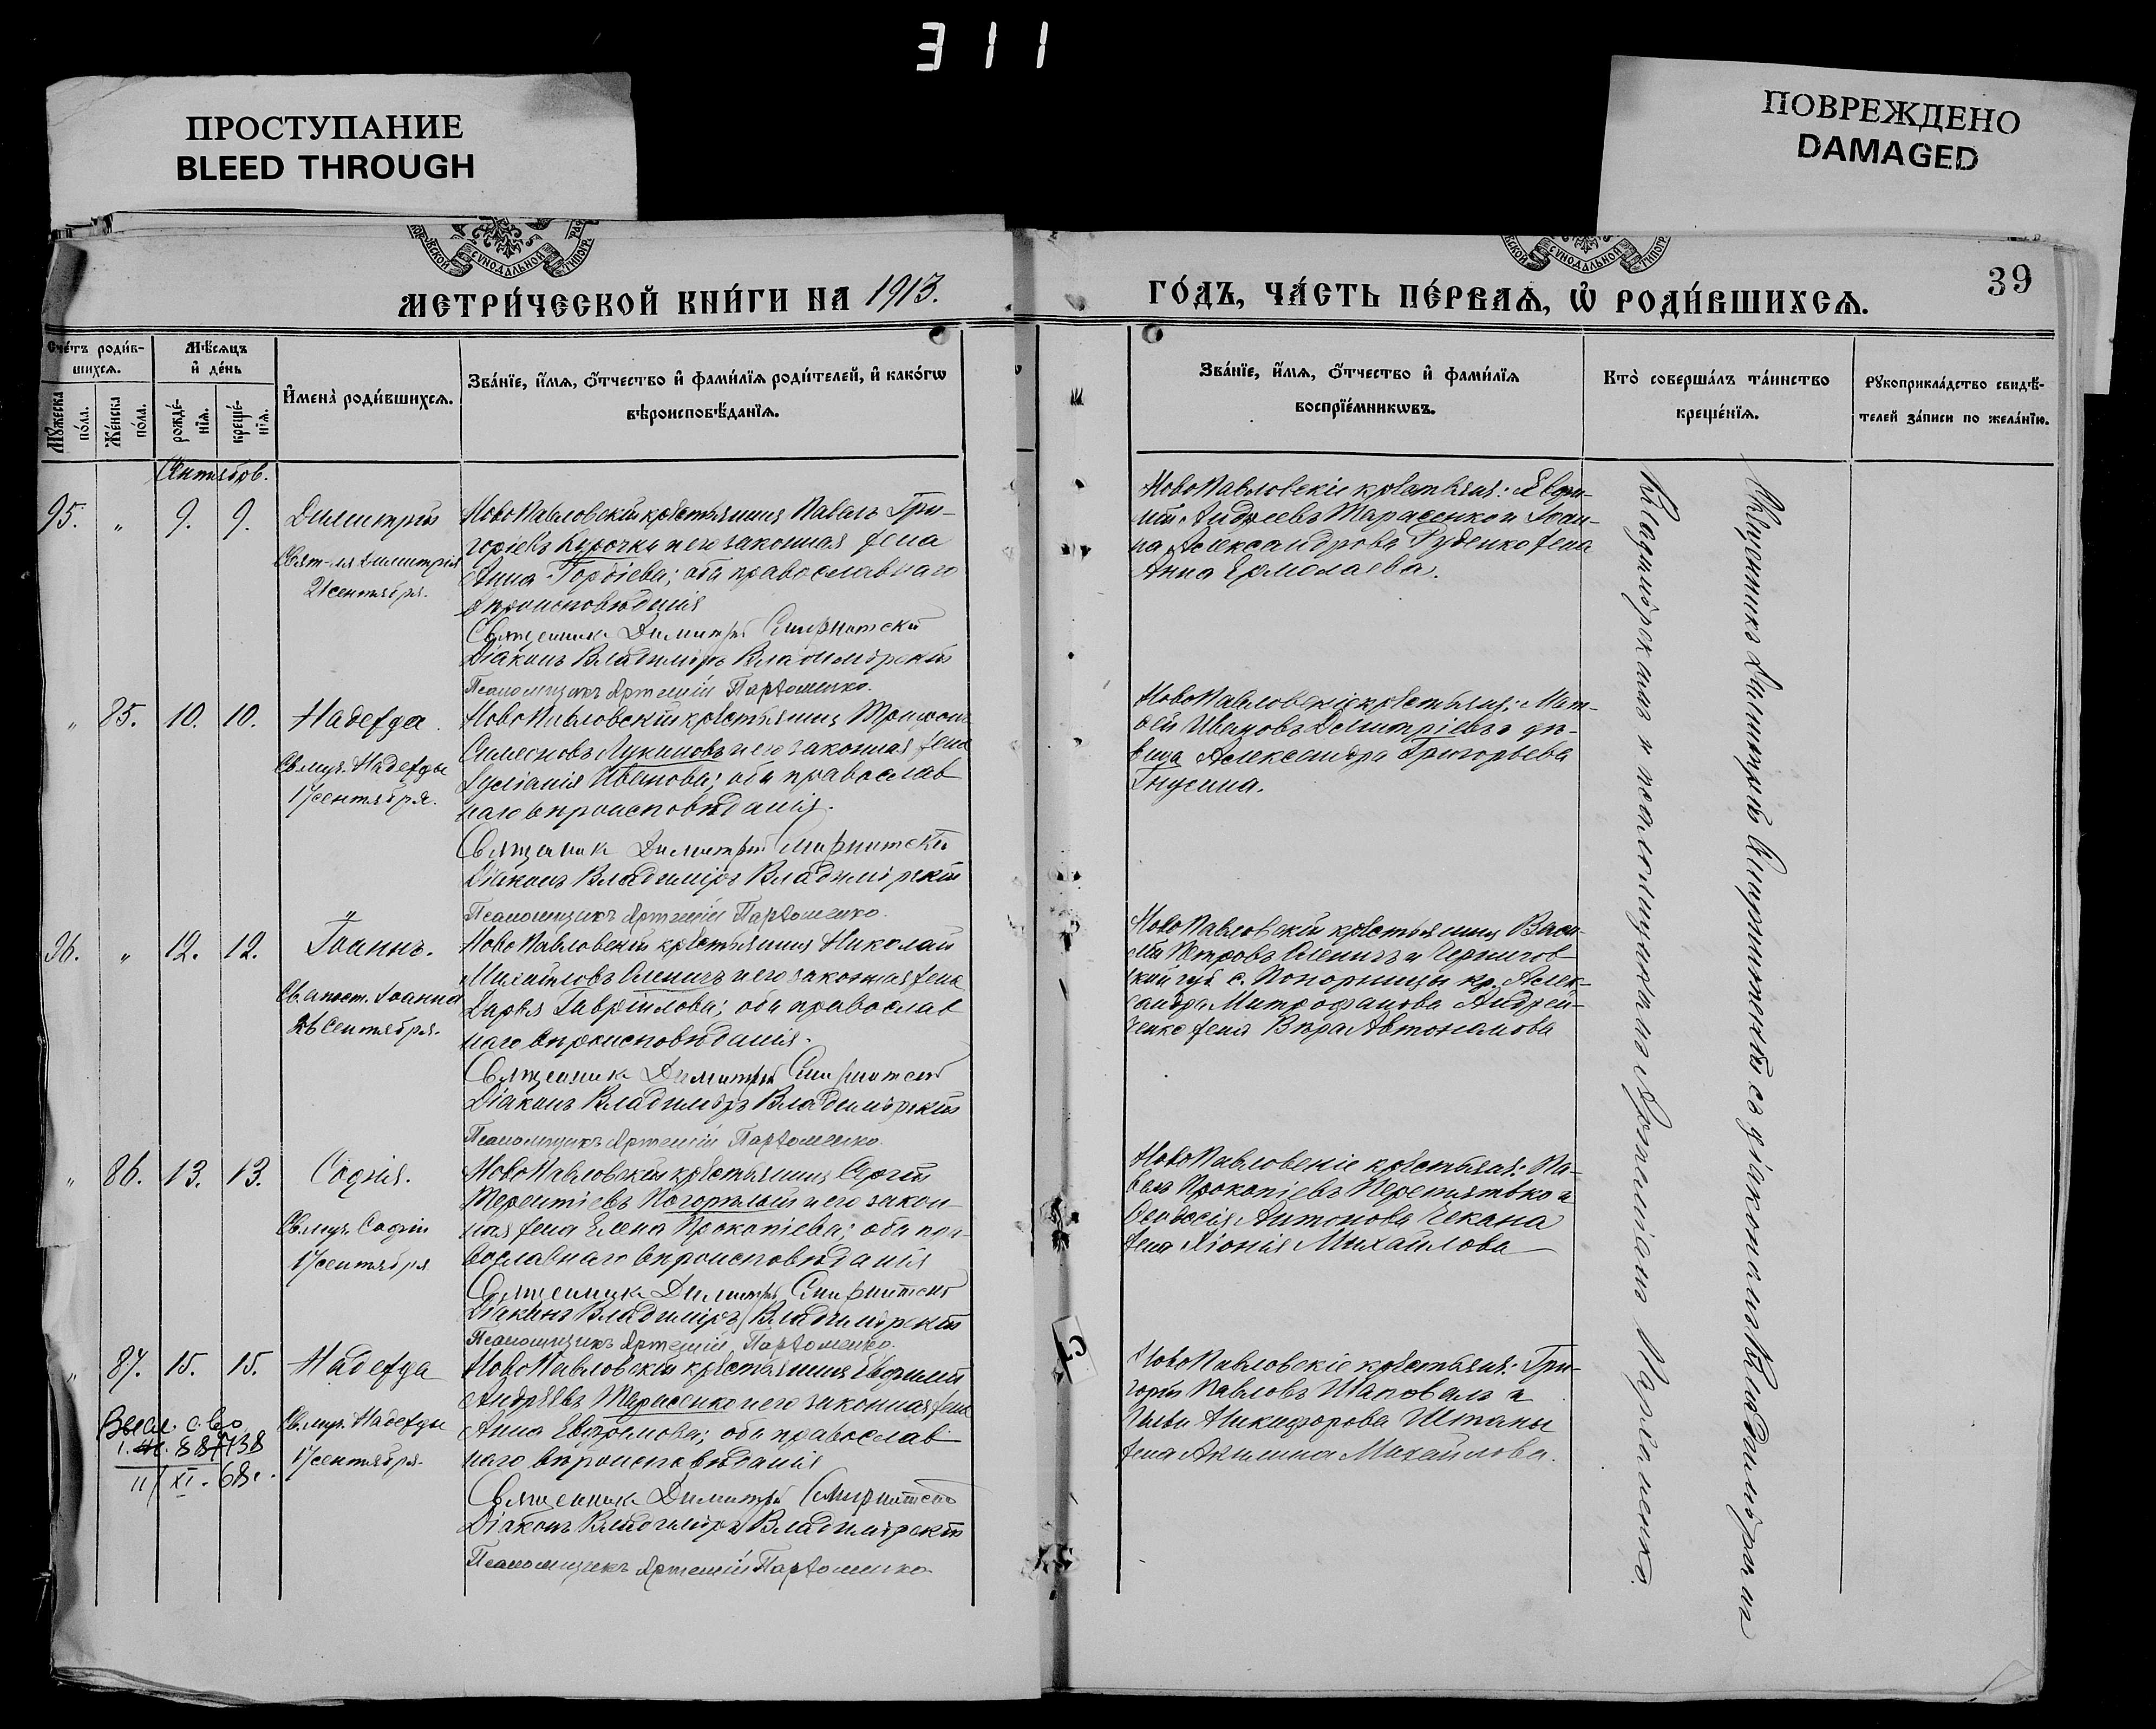 311
ПРОСТУПАНИЕ
BLEED THROUGH
ПОВРЕЖДЕНО
DAMAGED
СѴНОДАЛЬНОЙ
СѴНОДАЛЬНОЙ
МЕТРИ́ЧЕСКОЙ КНИ́ГИ НА 1913.
ГО́ДЪ, ЧА́СТЬ ПЕ́РВАѦ, Ѡ҆ РОДИ́ВШИХСѦ.
39
Сче́тъ роди́в-
шихсѧ.
Мѣ́сѧцъ
и҆ де́нь
Мꙋ́жеска
по́ла.
Же́нска
по́ла.
рожде́-
нїѧ.
креще́-
нїѧ.
И҆мена̀ роди́вшихсѧ.
Зва́нїе, и҆́мѧ, ѻ҆́тчество и҆ фами́лїѧ роди́телей, и҆ како́гѡ
вѣроисповѣ́данїѧ.
Зва́нїе, и҆́мѧ, ѻ҆́тчество и҆ фами́лїѧ
воспрїе́мникѡвъ.
Кто̀ соверша́лъ та́инство
креще́нїѧ.
Рꙋкоприкла́дство свидѣ́-
телей за́писи по жела́нїю.
Сентябрь.
95. " 9. 9. Димитрій
Свят-ля Димитрія
21 сентября.
НовоПавловскій крестьянинъ Павелъ Гри-
горіевъ Курочка и его законная жена
Анна Гордіева; оба православнаго
вѣроисповѣданія
Священникъ Димитрій Смирнитскій
Діаконъ Владиміръ Владимірскій
Псаломщикъ Артемій Пархоменко.
НовоПавловскіе крестьяне: Евфи-
мій Андреевъ Тарасенко и Іоан-
на Александрова Руденко жена
Анна Ермолаева.
" 85. 10. 10. Надежда.
Св. муч. Надежды
17 сентября.
НовоПавловскій крестьянинъ Трифонъ
Симеоновъ Лукиновъ и его законная жена
Іуліанія Иванова; оба православ
наго вѣроисповѣданія.
Священникъ Димитрій Смирнитскій
Діаконъ Владиміръ Владимірскій
Псаломщикъ Артемій Пархоменко.
НовоПавловскіе крестьяне: Мат-
ѳей Ивановъ Димитріевъ и дѣ-
вица Александра Григорьева
Гнусина.
96. " 12. 12. Іоаннъ.
Св. апост. Іоанна
26 Сентября.
НовоПавловскій крестьянинъ Николай
Михайловъ Оленичъ и его законная жена
Дарья Гавріилова; оба православ
наго вѣроисповѣданія.
Священникъ Димитрій Смирнитскій
Діаконъ Владиміръ Владимірскій
Псаломщикъ Артемій Пархоменко.
НовоПавловскій крестьянинъ Васи-
лій Петровъ Оленичъ и Чернигов
ской губ с. Понорницы кр. Алек-
сандра Митрофанова Андрей-
ченко жена Вѣра Автономова
" 86. 13. 13. Софія.
Св. муч. Софіи
17 сентября
НовоПавловскій крестьянинъ Сергій
Терентіевъ Погорѣлый и его закон-
ная жена Елена Прокопіева; оба пра-
вославнаго вѣроисповѣданія
Священникъ Димитрій Смирнитскій
Діаконъ Владиміръ Владимірскій
Псаломщикъ Артемій Пархоменко.
НовоПавловскіе крестьяне: Па-
велъ Прокопіевъ Перепятько и
Ѳеодосія Антонова Чекана
жена Хіонія Михайлова
" 87. 15. 15. Надежда
Св. муч. Надежды
17 сентября.
НовоПавловскій крестьянинъ Евфимій
Андреевъ Тарасенко и его законная жена
Анна Евфремова; оба православ
наго вѣроисповѣданія
Священникъ Димитрій Смирнитскій
Діаконъ Владиміръ Владимірскій
Псаломщикъ Артемій Пархоменко.
НовоПавловскіе крестьяне: Гри-
горій Павловъ Шаповалъ и
Ильи Никифорова Штаны
жена Акилина Михайлова.
Высл. с-во
11/XI-68г.
Священникъ Димитрій Смирнитскій съ діакономъ Владиміромъ
Владимірскимъ и псаломщикомъ Артеміемъ Пархоменко.